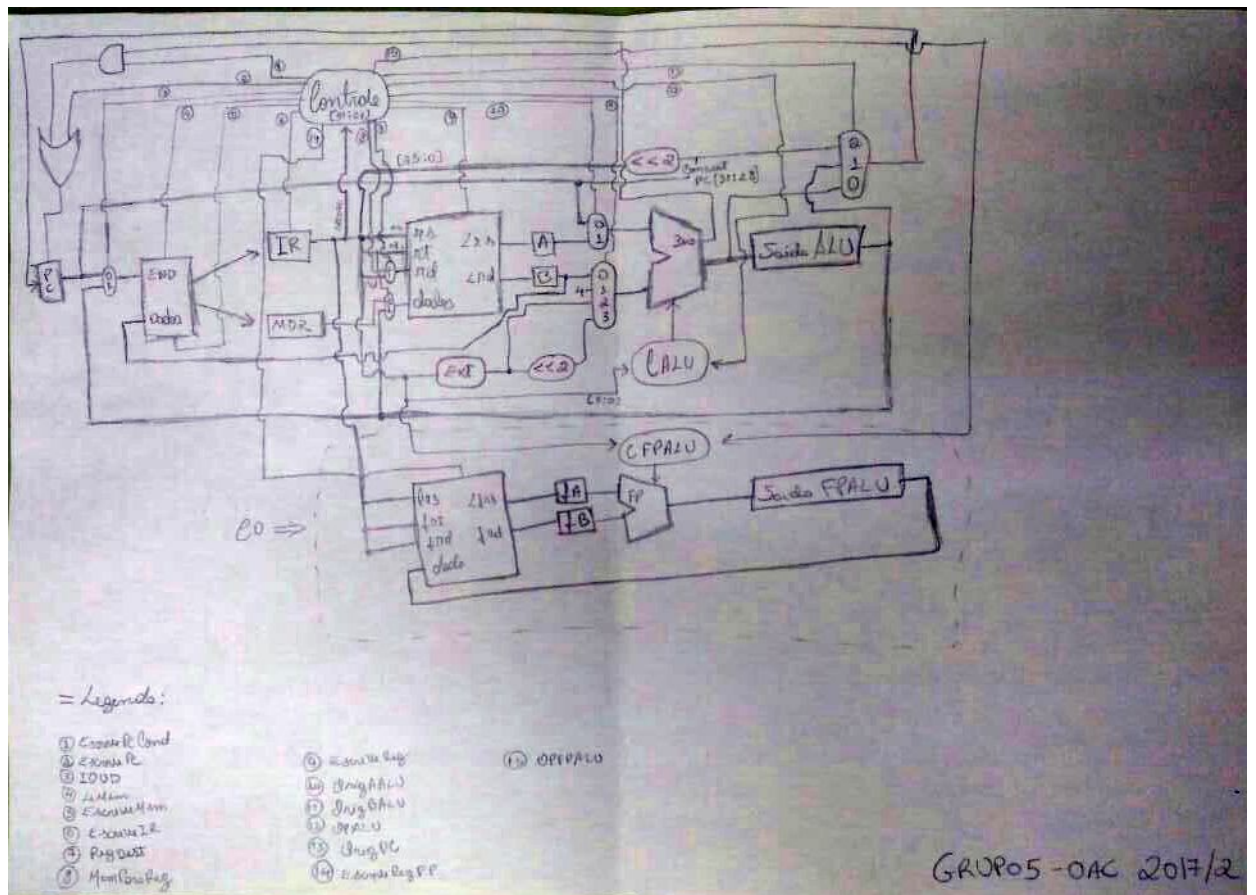 Controle
[31:26]
[25:0]
<<2
Concat
PC[31:28]
2
1
0
PC
IR
MDR
END
Dados
rs
rt
rd
dados
Lrs
Lrd
A
B
0
1
0
4
1
2
3
Zero
Saída ALU
Ext
<<2
CALU
[5:0]
CFPALU
C0 =>
frs
frt
frd
dado
Lfrs
fA
fB
FP
Saída FPALU
= Legenda:
① EscrevePCCond
② EscrevePC
③ IOUD
④ LeMem
⑤ EscreveMem
⑥ EscreveIR
⑦ RegDest
⑧ MemParaReg
⑨ EscreveReg
⑩ OrigAALU
⑪ OrigBALU
⑫ OPALU
⑬ OrigPC
⑭ EscreveRegFP
⑮ OPFPALU
GRUPO5-OAC 2017/2